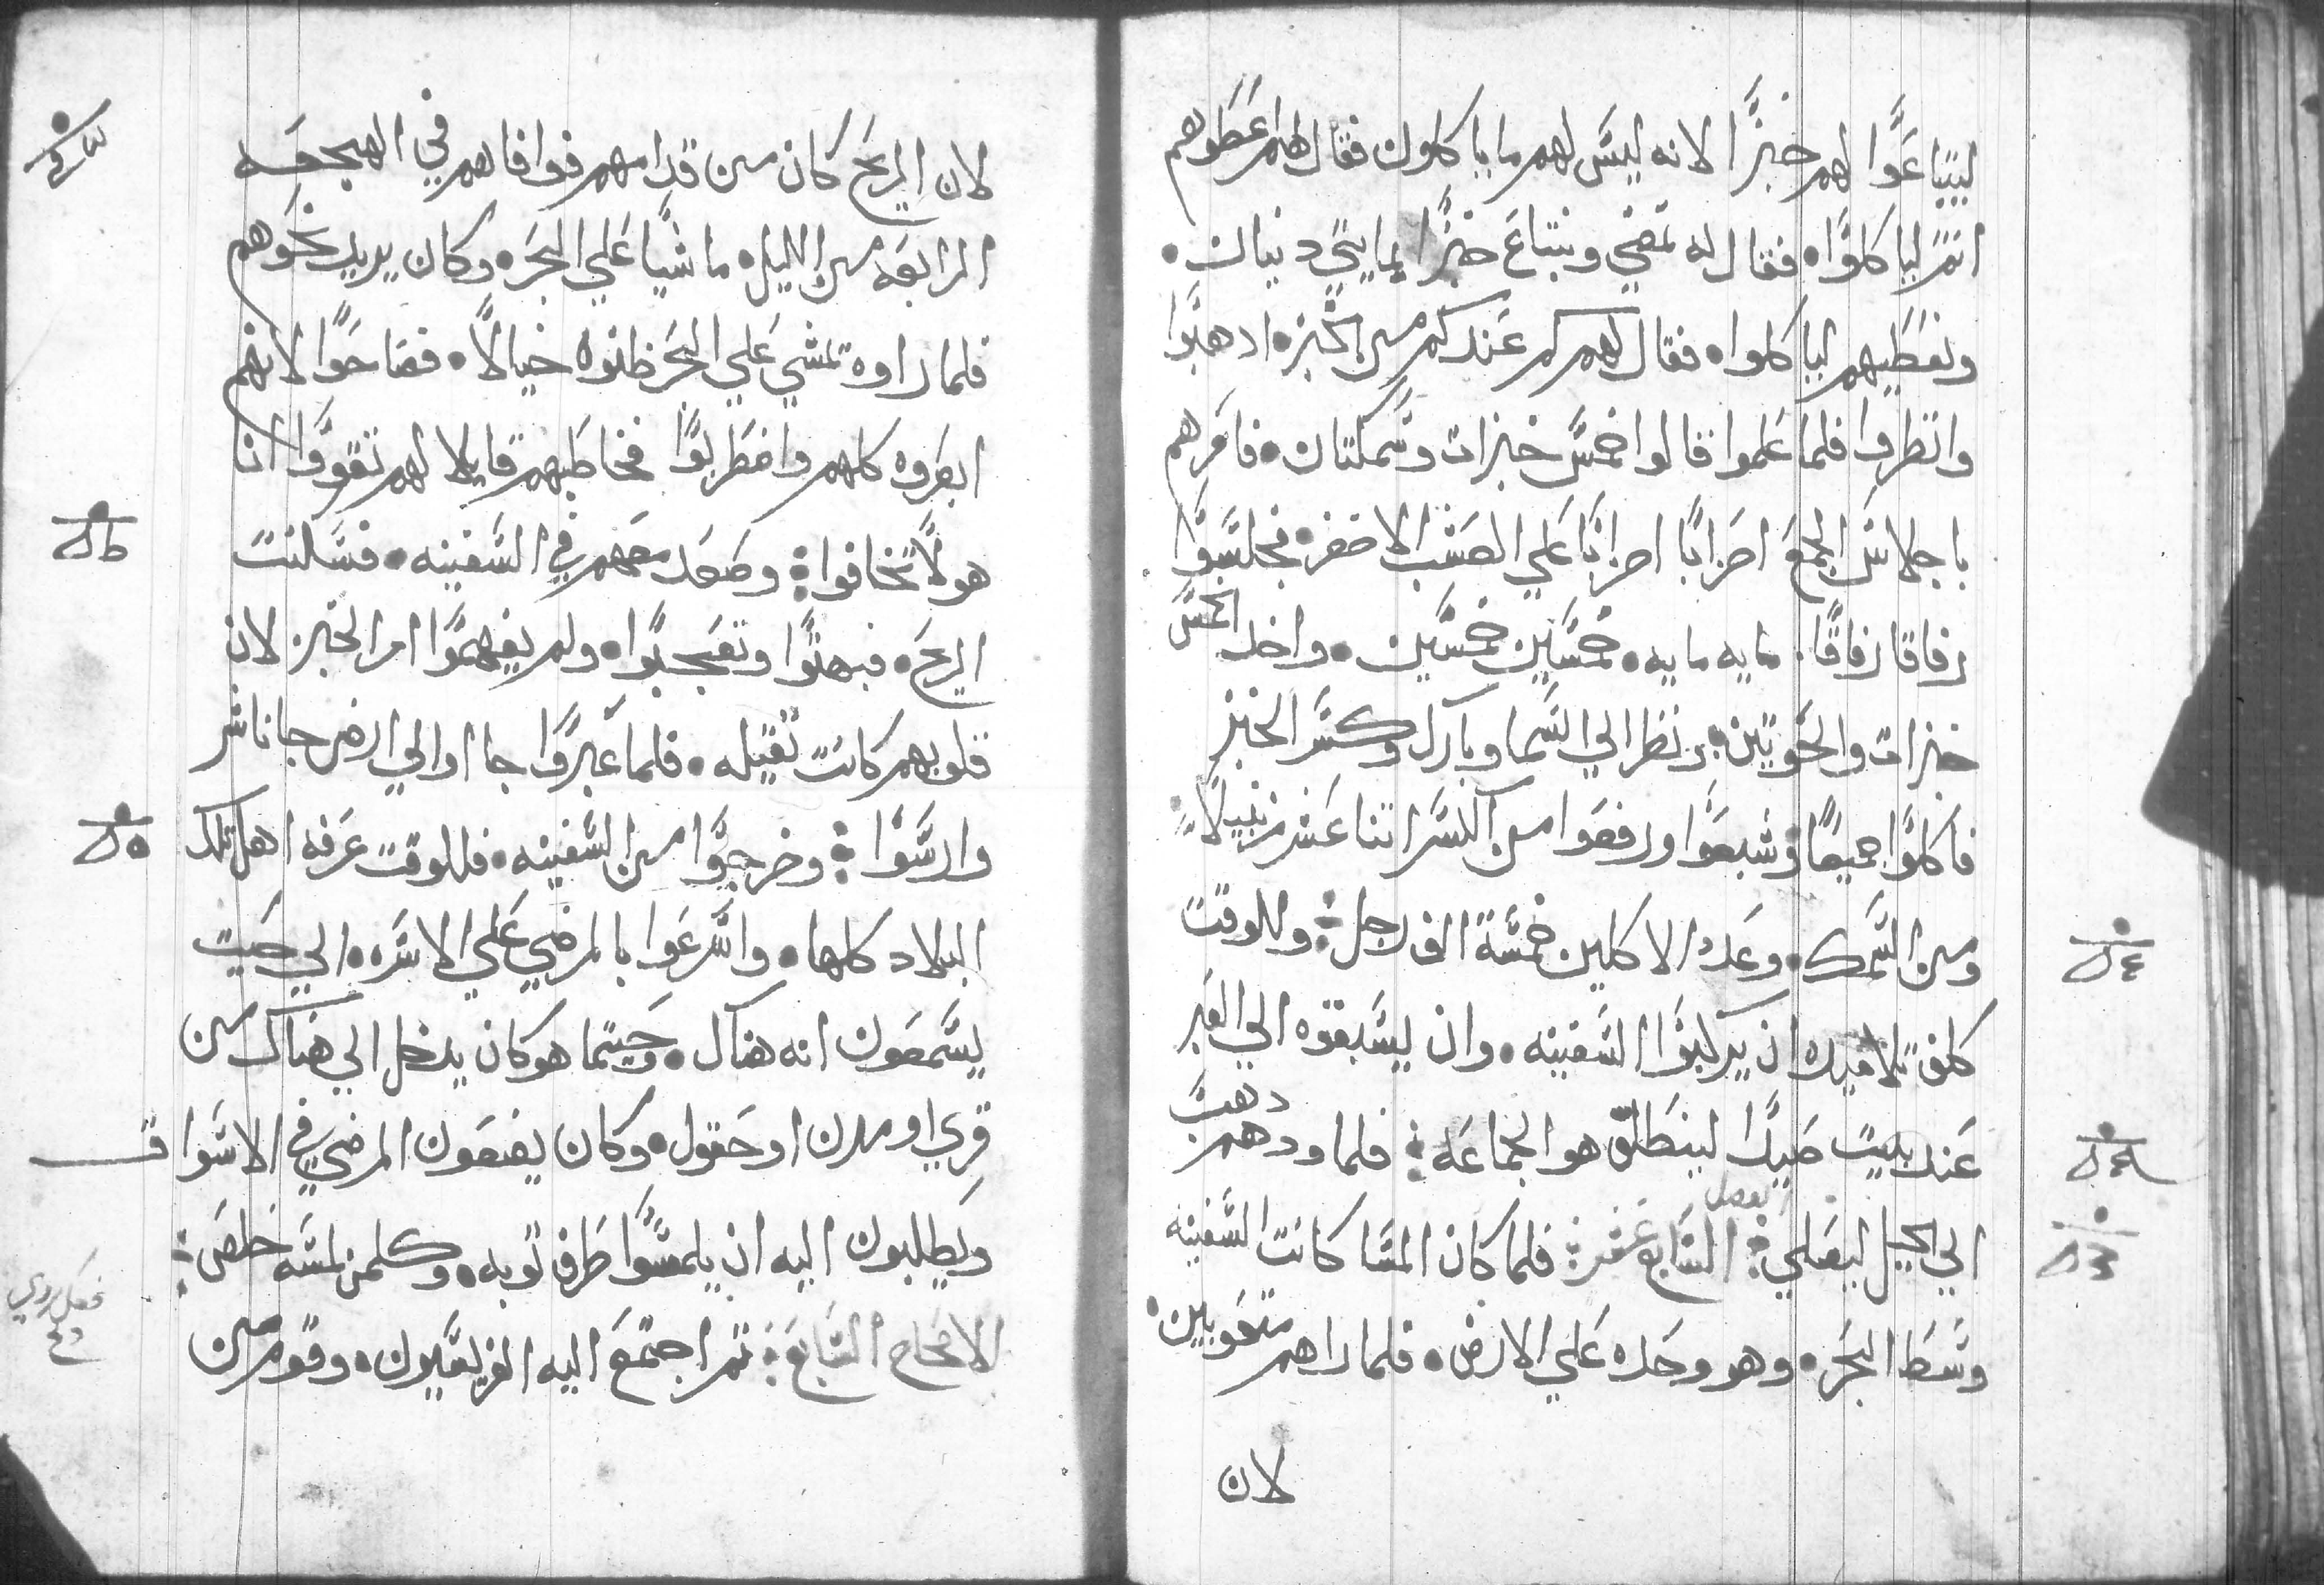 ليبتاعوا لهم خبزا لانه ليس لهم ما ياكلون فقال لهم اعطوهم
انتم لياكلوا۰ فقال له نمضي ونبتاع خبزا بمايتي دينار۰
ونعطيهم لياكلوا۰ فقال لهم كم عندكم من الخبز۰ ادهبوا
وانظروا فلما علموا قالوا خمس خبزات وسمكتان۰ فامرهم
باجلاس الجمع احزابا احزابا علي العشب الاخضر۰ فجلسوا
رفاقا رفاقا۰ مايه مايه۰ خمسين خمسين۰ واخد الخمس
خبزات والحوتين۰ ونظر الي السما وبارك وكسر الخبز
فاكلوا جميعا وشبعوا ورفعوا من الكسر اتنا عشر زنبيلا
ومن السمك۰ وعدد الاكلين خمسة الف رجل؛ وللوقت
كلف تلاميده ان يركبوا السفينه۰ وان يسبقوه الي العبر
عند بيت صيدا لينطلق هو الجماعه؛ فلما ودهم دهب
الي الجبل ليصلي؛ الفصل السابع عشر؛ فلما كان المسا كانت السفينه
وسط البحر۰ وهو وحده علي الارض۰ فلما راهم متعوبين۰
لان
لان الريح كان من قدامهم فوافاهم في الهجعه
الرابعه من الليل۰ ماشيا علي البحر۰ وكان يريد نحوهم
فلما راوه تمشي علي البحر ظنوه خيالا۰ فصاحوا لانهم
ابصروه كلهم واضطربوا فخاطبهم قايلا لهم تقووا انا
هو لا تخافوا؛ وصعد معهم في السفينه۰ فسكنت
الريح۰ فبهتوا وتعجبوا۰ ولم يفهموا امر الخبز لان
قلوبهم كانت تقيله۰ فلما عبروا جااوا الي ارض جاناشر
وارسوا؛ وخرجوا من السفينه۰ فللوقت عرفه اهل تلك
البلاد كلها۰ واسرعوا بالمرضي علي الاسره۰ الي حيت
يسمعون انه هناك۰ وحيتما هو كان يدخل الي هناك من
قري او مدن او حقول۰ وكان يضعون المرضي في الاسواق
ويطلبون اليه ان يلمسوا طرف توبه۰ وكلمن لمسه خلص؛
الاصحاح السابع؛ تم اجتمع اليه الفريسيون۰ وقوم من